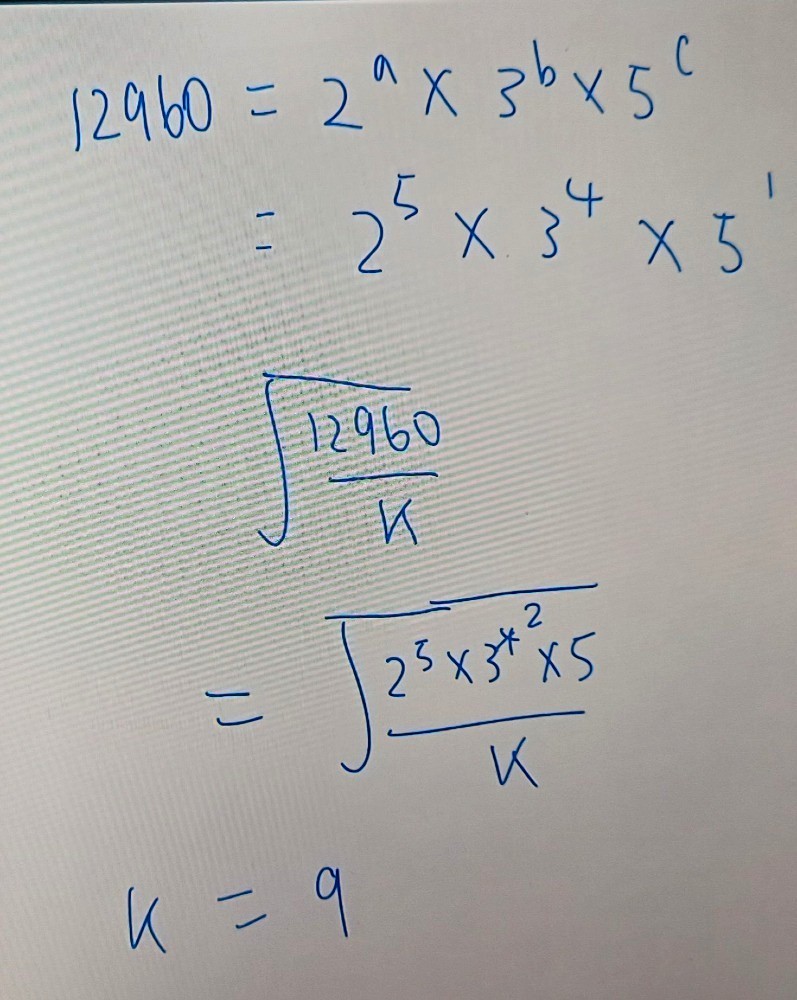 12960 = 2^a × 3^b × 5^c
= 2^5 × 3^4 × 5^1
√(12960/K)
= √((2^5 × 3^4̶ ^2 × 5)/K)
K = 9